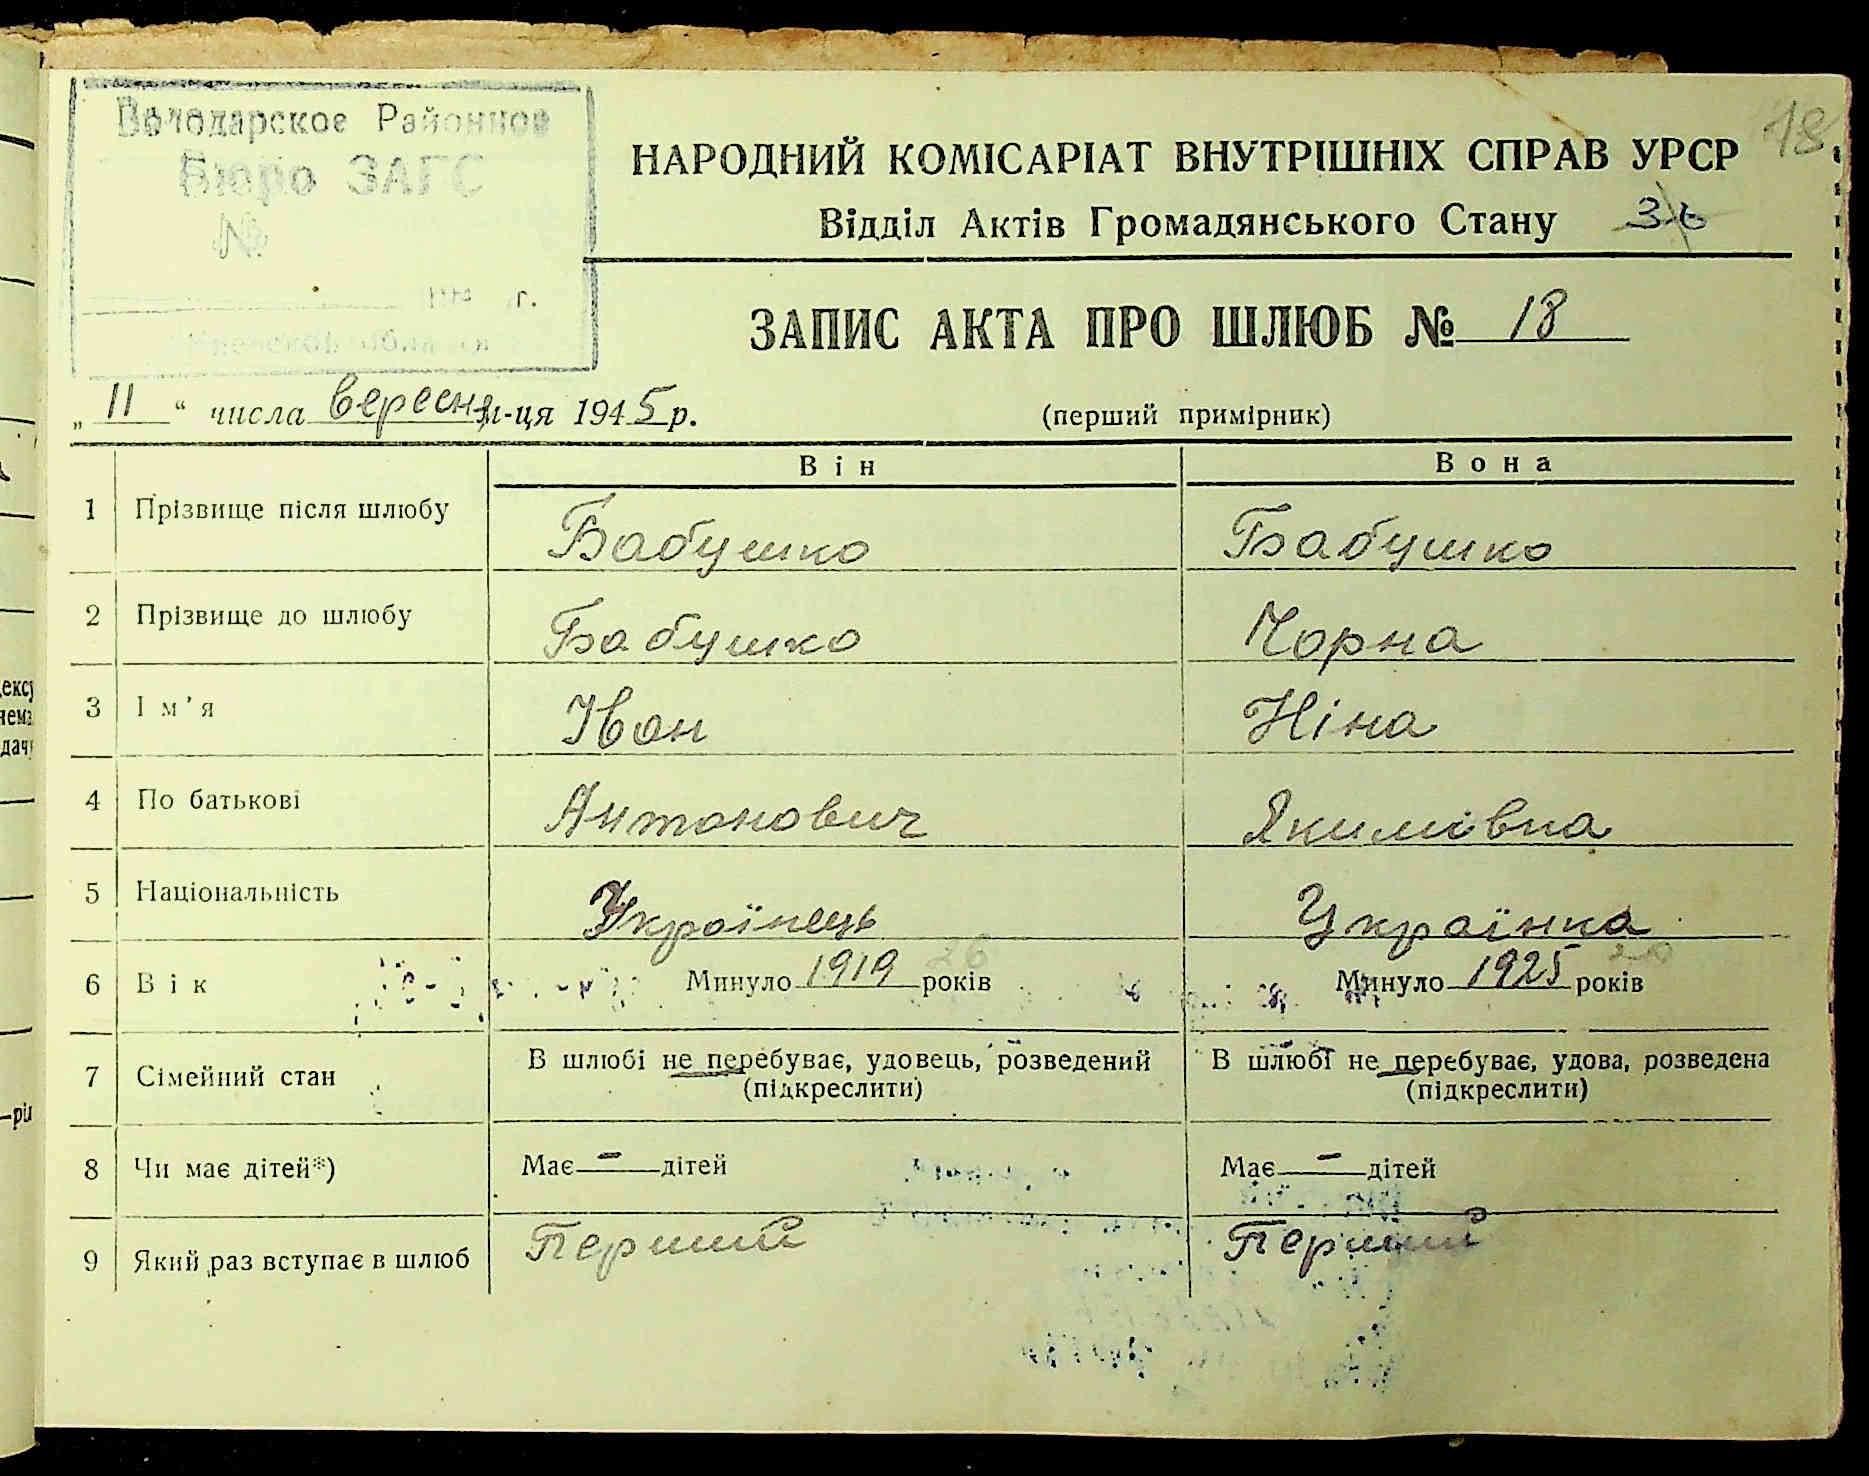 Володарское Районное
Бюро ЗАГС
№
г.
18
НАРОДНИЙ КОМІСАРІАТ ВНУТРІШНІХ СПРАВ УРСР
Відділ Актів Громадянського Стану
ЗАПИС АКТА ПРО ШЛЮБ № 18
„ 11 “ числа вересня м-ця 1945 р. (перший примірник)
Він Вона
1 Прізвище після шлюбу Бабушко Бабушко
2 Прізвище до шлюбу Бабушко Чорна
3 Ім’я Іван Ніна
4 По батькові Антонович Якимівна
5 Національність Українець Українка
26 20
6 Вік Минуло 1919 років Минуло 1925 років
7 Сімейний стан В шлюбі не перебуває, удовець, розведений В шлюбі не перебуває, удова, розведена
(підкреслити) (підкреслити)
8 Чи має дітей*) Має — дітей Має — дітей
9 Який раз вступає в шлюб Перший Перший